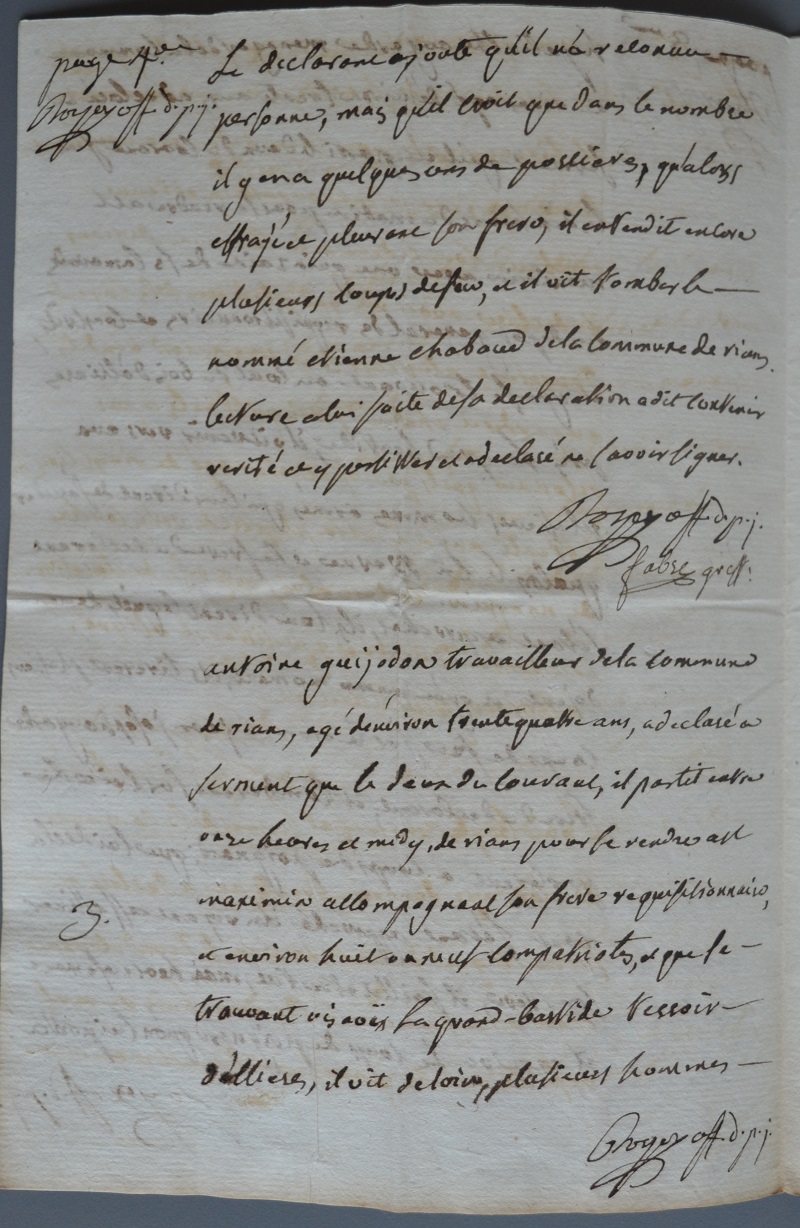 page 4e.
Royer off. d. p. j.
Le declarant ajoute qu'il n'a reconnu —
personne, mais qu'il croit que dans le nombre
il y en a quelques uns de possieres, qu'alors
effrajé et pleurant son frere, il entendit encore
plusieurs coups de feu, et il vit tomber le —
nommé etienne chabaud de la commune de rians.
lecture a lui faite de sa declaration a dit contenir
verité et y persister et a declaré ne savoir signer.
Royer off. d. p. j.
fabre greff.
antoine gueijodon travailleur de la commune
de rians, agé d'environ trente quatre ans, a declaré a
serment que le deux du courant, il partit entre
onze heures et midy, de rians pour se rendre a st
maximin accompagnant son frere requisitionnaire,
et environ huit ou neuf compatriotes, et que se —
trouvant vis avis la grand-bastide tessoir —
d'ollieres, il vit de loin, plusieurs hommes —
3.
Royer off. d. p. j.